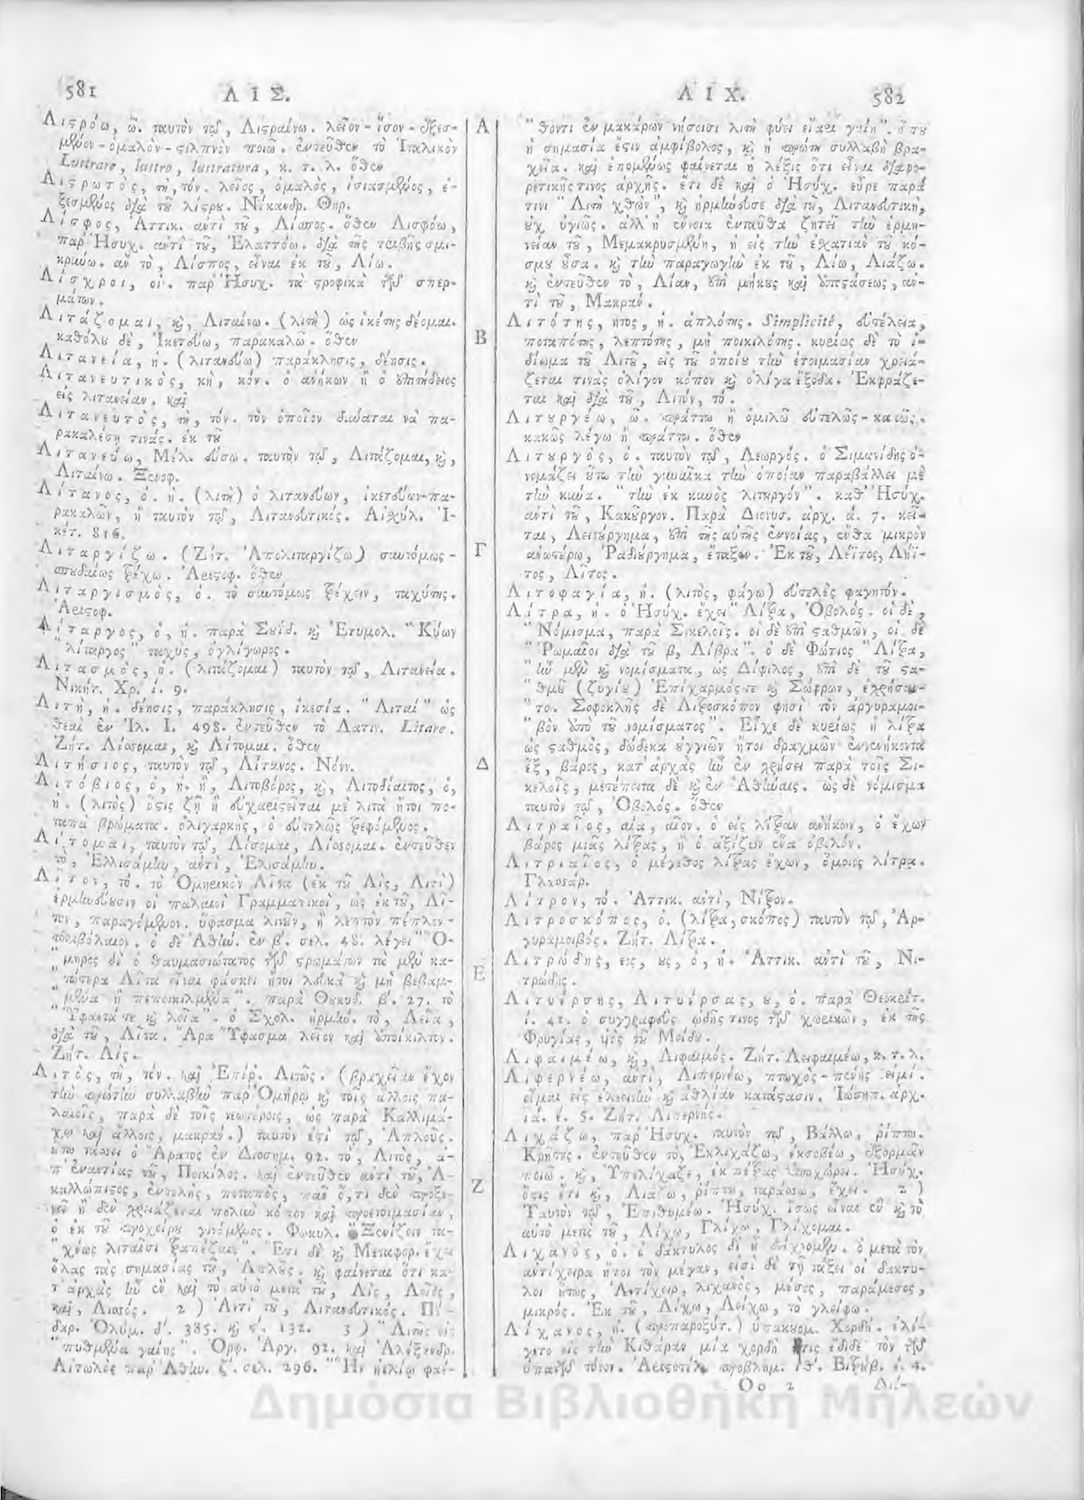 581 ΛΙΣ.
Λιςρόω, ῶ. ταυτὸν τῷ, Λιςραίνω. λεῖον-ἴσον-
ὁμαλὸν-ςιλπνὸν ποιῶ. ἐντεῦθεν τὸ Ἰταλικὸν
Lustrare, lustro, lustratura, κ. τ. λ. ὅθεν
Λιςρωτὸς, τὴ, τόν. λεῖος, ὁμαλὸς, ἰσιασμένος, ἐ-
ξεσμένος διὰ τοῦ λίςρου. Νίκανδρ. Θηρ.
Λίσφος, Ἀττικ. αὐτὶ τοῦ, Λίσπος. ὅθεν Λισφόω,
παρ' Ἡσυχ. αὐτὶ τοῦ, Ἐλαττόω. διὰ τῆς σμι-
κρύνω. αὖ τὸ, Λίσπος, εἶναι ἐκ τοῦ, Λίω.
Λίσχροι, οἱ. παρ' Ἡσυχ. τὰ ςροφικὰ τῶν σπερ-
μάτων.
Λιτάζομαι, καὶ, Λιταίνω. (λιτὴ) ὡς ἱκέτης δέομαι.
καθόλου δὲ, Ἱκετεύω, παρακαλῶ. ὅθεν
Λιτανεία, ἡ. (λιτανεύω) παράκλησις, δέησις.
Λιτανευτικὸς, κὴ, κόν. ὁ ἀνήκων ἢ ὁ ἐπιτήδειος
εἰς λιτανείαν. καὶ
Λιτανευτὸς, τὴ, τόν. τὸν ὁποῖον δύναται νὰ πα-
ρακαλέσῃ τινάς. ἐκ τοῦ
Λιτανεύω, Μέλ. εύσω. ταυτὸν τῷ, Λιτάζομαι, καὶ,
Λιταίνω. Ξενοφ.
Λίτανος, ὁ. ἡ. (λιτὴ) ὁ λιτανεύων, ἱκετεύων-πα-
ρακαλῶν, ἢ ταυτὸν τῷ, Λιτανευτικός. Αἰσχύλ. Ἱ-
κέτ. 816.
Λιταργίζω. (Ζήτ. Ἀπολιταργίζω) συντόμως-
σπουδαίως τρέχω. Ἀριςοφ. ὅθεν
Λιταργισμὸς, ὁ. τὸ συντόμως τρέχειν, ταχύτης.
Ἀριςοφ.
Λίταργος, ὁ, ἡ. παρὰ Σουίδ. καὶ Ἐτυμολ. "Κύων
"λίταργος" ταχὺς, ὀγλίγωρος.
Λιτασμὸς, ὁ. (λιτάζομαι) ταυτὸν τῷ, Λιτανεία.
Νικήτ. Χρ. ί. 9.
Λιτὴ, ἡ. δέησις, παράκλησις, ἱκεσία. "Λιταὶ" ὡς
θεαὶ ἐν Ἰλ. Ι. 498. ἐντεῦθεν τὸ Λατιν. Litare.
Ζήτ. Λίσσομαι, καὶ Λίτομαι. ὅθεν
Λιτήσιος, ταυτὸν τῷ, Λίτανος. Νόνν.
Λιτόβιος, ὁ, ἡ. ἢ, Λιτοβόρος, καὶ, Λιτοδίαιτος, ὁ,
ἡ. (λιτὸς) ὅςις ζῇ ἢ εὐχαριςεῖται μὲ λιτὰ ἤτοι πο-
ταπὰ βρώματα. ὀλιγαρκὴς, ὁ εὐτελῶς τρεφόμενος.
Λίτομαι, ταυτὸν τῷ, Λίσομαι, Λίσσομαι. ἐντεῦθεν
τὸ, Ἐλλισάμην, αὐτὶ, Ἐλισάμην.
Λῖτον, τό. τὸ Ὁμηρικὸν Λῖτα (ἐκ τοῦ Λὶς, Λιτὶ)
ἑρμηνεύουσιν οἱ παλαιοὶ Γραμματικοὶ, ὡς ἐκ τοῦ, Λῖ-
τον, παραγόμενον. ὕφασμα λινοῦν, ἢ λεπτὸν πέπλον-
ὁ δὲ Ἀθήν. ἐν β'. σελ. 48. λέγει "Ὁ-
"μηρος δὲ ὁ θαυμασιώτατος τῶν ςρωμάτων τὰ μὲν κα-
"τώτερα Λῖτα εἶναι φάσκει ἤτοι λευκὰ καὶ μὴ βεβαμ-
"μένα ἢ πεποικιλμένα". παρὰ Θουκυδ. β'. 27. τὸ
"Ὑφαντά τε καὶ λεῖα". ὁ Σχολ. ἑρμην. τὸ, Λεῖα,
διὰ τοῦ, Λῖτα. Ἄρα Ὕφασμα λεῖον καὶ ἀποίκιλτον.
Ζήτ. Λίς.
Λιτὸς, τὴ, τόν. καὶ Ἐπίρ. Λιτῶς. (βραχεῖαν ἔχον
τὴν πρώτην συλλαβὴν παρ' Ὁμήρῳ καὶ τοῖς ἄλλοις πα-
λαιοῖς, παρὰ δὲ τοῖς νεωτέροις, ὡς παρὰ Καλλιμά-
χῳ καὶ ἄλλοις, μακράν.) ταυτὸν ἐςὶ τῷ, Ἁπλοῦς.
οὕτω τάσσει ὁ Ἄρατος ἐν Διοσημ. 92. τὸ, Λιτὸς, ἀ-
π' ἐναντίας τοῦ, Ποικίλος. καὶ ἐντεῦθεν αὐτὶ τοῦ, Ἀ-
καλλώπιςος, εὐτελὴς, ποταπὸς, πᾶν ὅ, τι δὲν
ἢ δὲν χρειάζεται πολὺν κόπον καὶ προετοιμασίαν,
ὁ ἐκ τοῦ προχείρου γινόμενος. Φωκυλ. "Ξενίζειν τα-
"χέως λιταῖσι τραπέζαις". Ἔτι δὲ καὶ Μεταφορ. ἔχει
ὅλας τὰς σημασίας τοῦ, Ἁπλοῦς. καὶ φαίνεται ὅτι κα-
τ' ἀρχὰς ἦν ἓν καὶ τὸ αὐτὸ μετὰ τοῦ, Λὶς, Λεῖος,
καὶ, Λισσός. 2) Αὐτὶ τοῦ, Λιτανευτικός. Πιν-
δαρ. Ὀλύμ. δ'. 385. καὶ ς'. 132. 3) "Λιτῆς εἰς
"πυθμένα γαίης". Ὀρφ. Ἀργ. 92. καὶ Ἀλέξανδρ.
Αἰτωλὸς παρ' Ἀθήν. ζ'. σελ. 296. "Ἣν ἠελίῳ φαέ-
Α
Β
Γ
Δ
Ε
Ζ
ΛΙΧ. 582
"θοντι ἐν μακάρων νήσοισι λιτὴ φύει εἴαρι γαίη". ὅπου
ἡ σημασία ἐςὶν ἀμφίβολος, καὶ ἡ πρώτη συλλαβὴ βρα-
χεῖα. καὶ ἑπομένως φαίνεται ἡ λέξις ὅτι εἶναι διαφο-
ρετικῆς τινος ἀρχῆς. ἔτι δὲ καὶ ὁ Ἡσύχ. εὗρε παρά
τινι "Λιτὴ χθὼν", καὶ ἡρμήνευσε διὰ τοῦ, Λιτανευτικὴ,
οὐχ ὑγιῶς. ἀλλ' ἡ ἔννοια ἐνταῦθα ζητεῖ τὴν ἑρμη-
νείαν τοῦ, Μεμακρυσμένη, ἡ εἰς τὴν ἐσχατιὰν τοῦ κό-
σμου οὖσα. καὶ τὴν παραγωγὴν ἐκ τοῦ, Λίω, Λιάζω.
καὶ ἐντεῦθεν τὸ, Λίαν, ἐπὶ μήκους καὶ ἀποςάσεως, αὐ-
τὶ τοῦ, Μακράν.
Λιτότης, ητος, ἡ. ἁπλότης. Simplicité, εὐτέλεια,
ποταπότης, λεπτότης, μὴ ποικιλότης. κυρίως δὲ τὸ ἰ-
δίωμα τοῦ Λιτοῦ, εἰς τοῦ ὁποίου τὴν ἑτοιμασίαν χρειά-
ζεται τινὰς ὀλίγον κόπον καὶ ὀλίγα ἔξοδα. Ἐκφράζε-
ται καὶ διὰ τοῦ, Λιτόν, τό.
Λιτουργέω, ῶ. πράττω ἢ ὁμιλῶ εὐτελῶς-κακῶς.
κακῶς λέγω ἢ πράττω. ὅθεν
Λιτουργὸς, ὁ. ταυτὸν τῷ, Λεωργός. ὁ Σιμωνίδης ὀ-
νομάζει οὕτω τὴν γυναῖκα τὴν ὁποίαν παραβάλλει μὲ
τὴν κύνα. "τὴν ἐκ κυνὸς λιτουργόν". καθ' Ἡσύχ.
αὐτὶ τοῦ, Κακοῦργον. Παρὰ Διονυσ. ἀρχ. ά. 7. κεῖ-
ται, Λειτούργημα, ἐπὶ τῆς αὐτῆς ἐννοίας, ἔνθα μικρὸν
ἀνωτέρω, Ῥαδιούργημα, ἔταξεν. Ἐκ τοῦ, Λέϊτος, Λήϊ-
τος, Λῖτος.
Λιτοφαγία, ἡ. (λιτὸς, φάγω) εὐτελὲς φαγητόν.
Λίτρα, ἡ. ὁ Ἡσύχ. ἔχει "Λίτρα, Ὀβολός. οἱ δὲ,
"Νόμισμα, παρὰ Σικελοῖς. οἱ δὲ ἐπὶ ςαθμῶν, οἱ δὲ
"Ῥωμαῖοι διὰ τοῦ β, Λίβρα". ὁ δὲ Φώτιος "Λίτρα,
"ἦν μὲν καὶ νομίσματα, ὡς Δίφιλος, ἐπὶ δὲ τοῦ ςα-
"θμοῦ (ζυγίου) Ἐπίχαρμός τε καὶ Σώφρων, ἐχρήσαν-
"το. Σοφοκλῆς δὲ Λιτροσκόπον φησὶ τὸν ἀργυραμοι-
"βὸν ἀπὸ τοῦ νομίσματος". Εἶχε δὲ κυρίως ἡ λίτρα
ὡς ςαθμὸς, δώδεκα οὐγγιῶν ἤτοι δραχμῶν ἐννενήκοντα
ἓξ, βάρος, κατ' ἀρχὰς ἦν ἐν χρήσει παρὰ τοῖς Σι-
κελοῖς, μετέπειτα δὲ καὶ ἐν Ἀθήναις. ὡς δὲ νόμισμα
ταυτὸν τῷ, Ὀβολός. ὅθεν
Λιτραῖος, αία, αῖον. ὁ εἰς λίτραν ἀνήκων, ὁ ἔχων
βάρος μιᾶς λίτρας, ἢ ὁ ἀξίζων ἕνα ὀβολόν.
Λιτριαῖος, ὁ μέγεθος λίτρας ἔχων, ὅμοιος λίτρα.
Γλωσσάρ.
Λίτρον, τό. Ἀττικ. αὐτὶ, Νίτρον.
Λιτροσκόπος, ὁ. (λίτρα, σκόπος) ταυτὸν τῷ, Ἀρ-
γυραμοιβός. Ζήτ. Λίτρα.
Λιτρώδης, εις, ους, ὁ, ἡ. Ἀττικ. αὐτὶ τοῦ, Νι-
τρώδης.
Λιτυέρσης, Λιτυέρσας, ου, ὁ. παρὰ Θεόκριτ.
ί. 41. ὁ συγγραφεὺς ᾠδῆς τινος τῶν χωρικῶν, ἐκ τῆς
Φρυγίας, υἱὸς τοῦ Μοίδου.
Λιφαιμέω, καὶ, Λιφαιμός. Ζήτ. Λειφαιμέω, κ. τ. λ.
Λιφερνέω, αὐτὶ, Λιπερνέω, πτωχὸς-πένης εἰμί.
εἶμαι εἰς ἐλεεινὴν καὶ ἀθλίαν κατάςασιν. Ἰώσηπ. ἀρχ.
ιά. ί. 5. Ζήτ. Λιπερνής.
Λιχάζω, παρ' Ἡσυχ. ταυτὸν τῷ, Βάλλω, ῥίπτω.
Κρῆτες. ἐντεῦθεν τὸ, Ἐκλιχάζω, ἐκσοβέω, ἐξορμᾶν
ποιῶ. καὶ, Ὑπελίχαζε, ἐκ πέτρας ὑπεχώρει. Ἡσύχ.
ὅςις ἔτι καὶ, Λιάζω, ῥίπτω, ταράσσω, ἔχει. 2)
Ταυτὸν τῷ, Ἐπιθυμέω. Ἡσύχ. ἴσως εἶναι ἓν καὶ τὸ
αὐτὸ μετὰ τοῦ, Λίχω, Γλίχω, Γλίχομαι.
Λιχανὸς, ὁ. ὁ δάκτυλος δι' οὗ λείχομεν. ὁ μετὰ τὸν
ἀντίχειρα ἤτοι τὸν μέγαν, εἰσὶ δὲ τῇ τάξει οἱ δάκτυ-
λοι οὕτως, Ἀντίχειρ, λιχανὸς, μέσος, παράμεσος,
μικρός. Ἐκ τοῦ, Λίχω, Λείχω, τὸ γλείφω.
Λίχανος, ἡ. (προπαροξύτ.) ὑπακούομ. Χορδή. ἐλέ-
γετο εἰς τὴν Κιθάραν μία χορδὴ ἥτις ἔδιδε τὸν τῶν
ὑπατῶν τόνον. Ἀριςοτέλ. προβλημ. ιθ'. Βιτρύβ. έ. 4.
Οο 2 Λι-
Δημόσια Βιβλιοθήκη Μηλεών